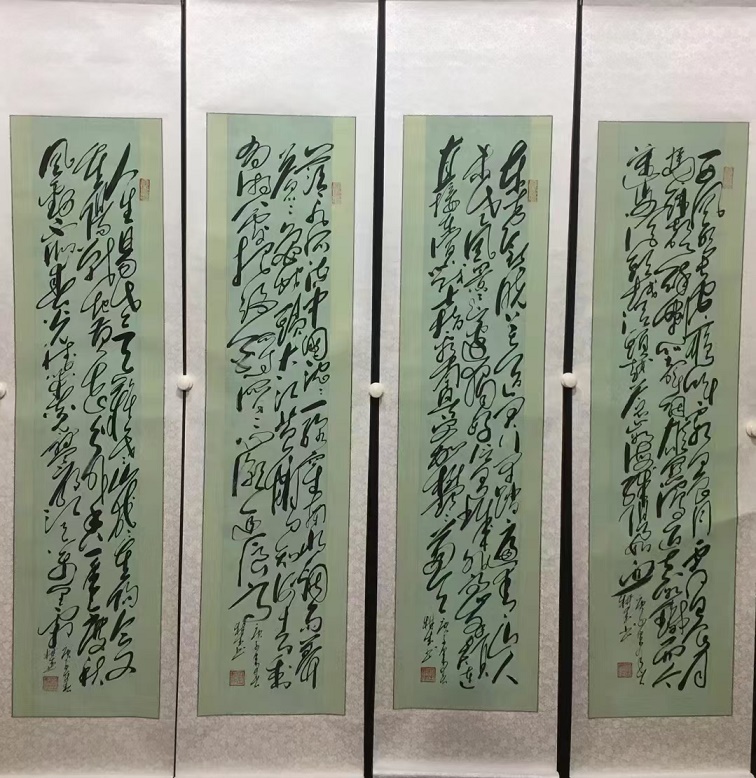 西风烈长空雁叫霜晨月霜晨月
马蹄声碎喇叭声咽雄关漫道真如铁而今
迈步从头越从头越苍山如海残阳如血
东方欲晓莫道君行早踏遍青山人
未老风景这边独好会昌城外高峰颠连
直接东溟战士指看南粤更加郁郁葱葱
茫茫九派流中国沉沉一线穿南北烟雨莽
苍苍龟蛇锁大江黄鹤知何去剩
有游人处把酒酹滔滔心潮逐浪高
人生易老天难老岁岁重阳今又
重阳战地黄花分外香一年一度秋
风劲不似春光胜似春光寥廓江天万里霜